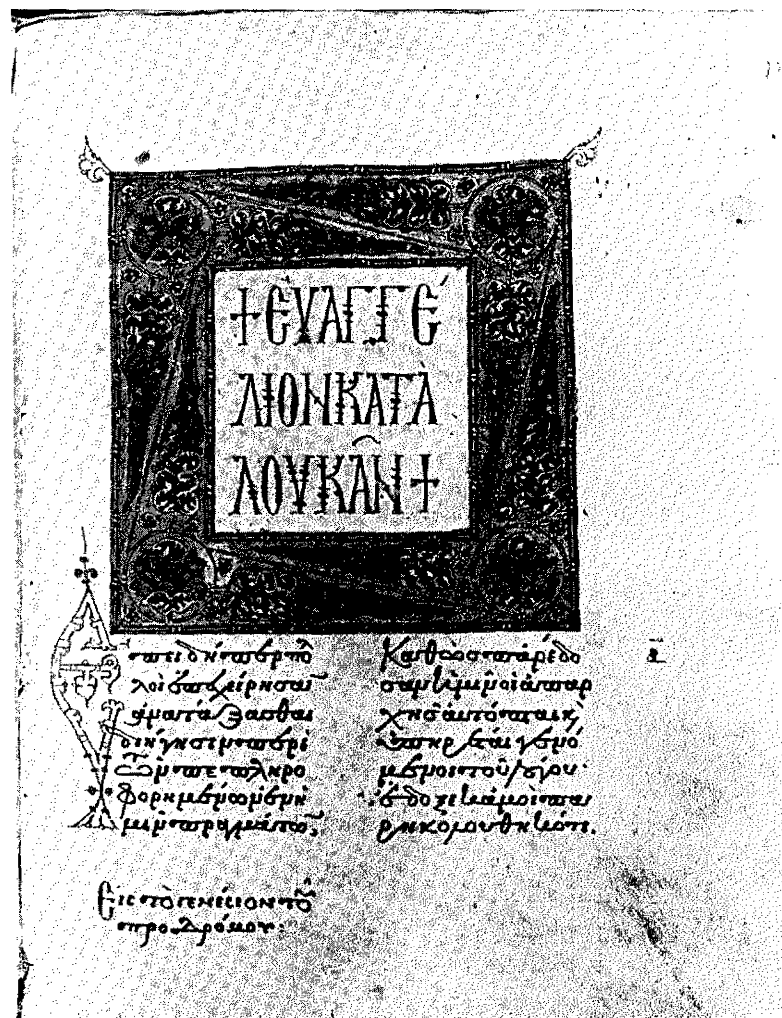 + ΕΥΑΓΓΈ
ΛΙΟΝ ΚΑΤᾺ
ΛΟΥΚΑ͂Ν +
Ἐπειδήπερ πολ
λοὶ ἐπεχείρησαν
ἀνατάξασθαι
διήγησιν περὶ
τῶν πεπληρο
φορημένων ἐν ἡ
μῖν πραγμάτων,
Καθὼς παρέδο
σαν ἡμῖν οἱ ἀπαρ
χῆς αὐτόπται κ
ὑπηρέται γενό
μενοι τοῦ λόγου·
ἔδοξε κἀμοὶ πα
ρηκολουθηκότι.
Εἰς τὸ γενέσιον τοῦ
προδρόμου: